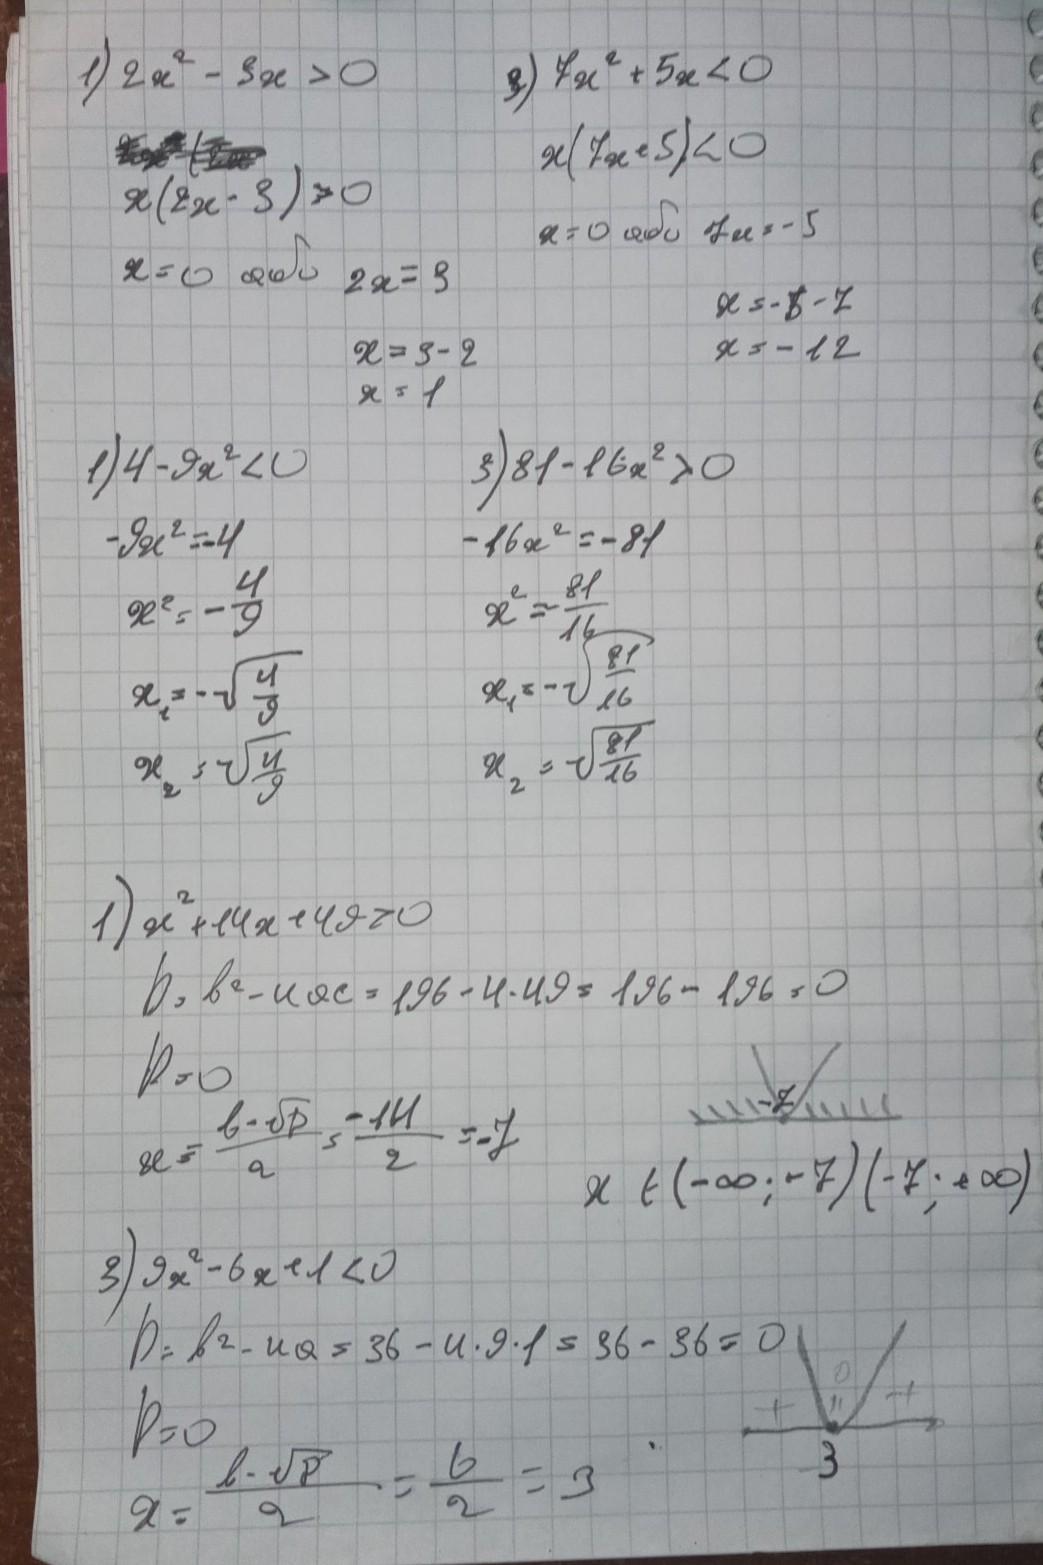 1) 2x² - 3x > 0
x(2x - 3) > 0
x = 0 або 2x = 3
x = 3 - 2
x = 1
3) 7x² + 5x < 0
x(7x + 5) < 0
x = 0 або 7x = -5
x = -5 - 7
x = -12
1) 4 - 9x² < 0
-9x² = -4
x² = -4/9
x₁ = -√(4/9)
x₂ = √(4/9)
3) 81 - 16x² > 0
-16x² = -81
x² = -81/16
x₁ = -√(81/16)
x₂ = √(81/16)
1) x² + 14x + 49 > 0
D = b² - 4ac = 196 - 4·49 = 196 - 196 = 0
D = 0
x = (b - √D)/a = -14/2 = -7
-7
x ∈ (-∞; -7)(-7; +∞)
3) 9x² - 6x + 1 < 0
D = b² - 4a = 36 - 4·9·1 = 36 - 36 = 0
D = 0
x = (b - √D)/2 = 6/2 = 3
+ 0 +
3